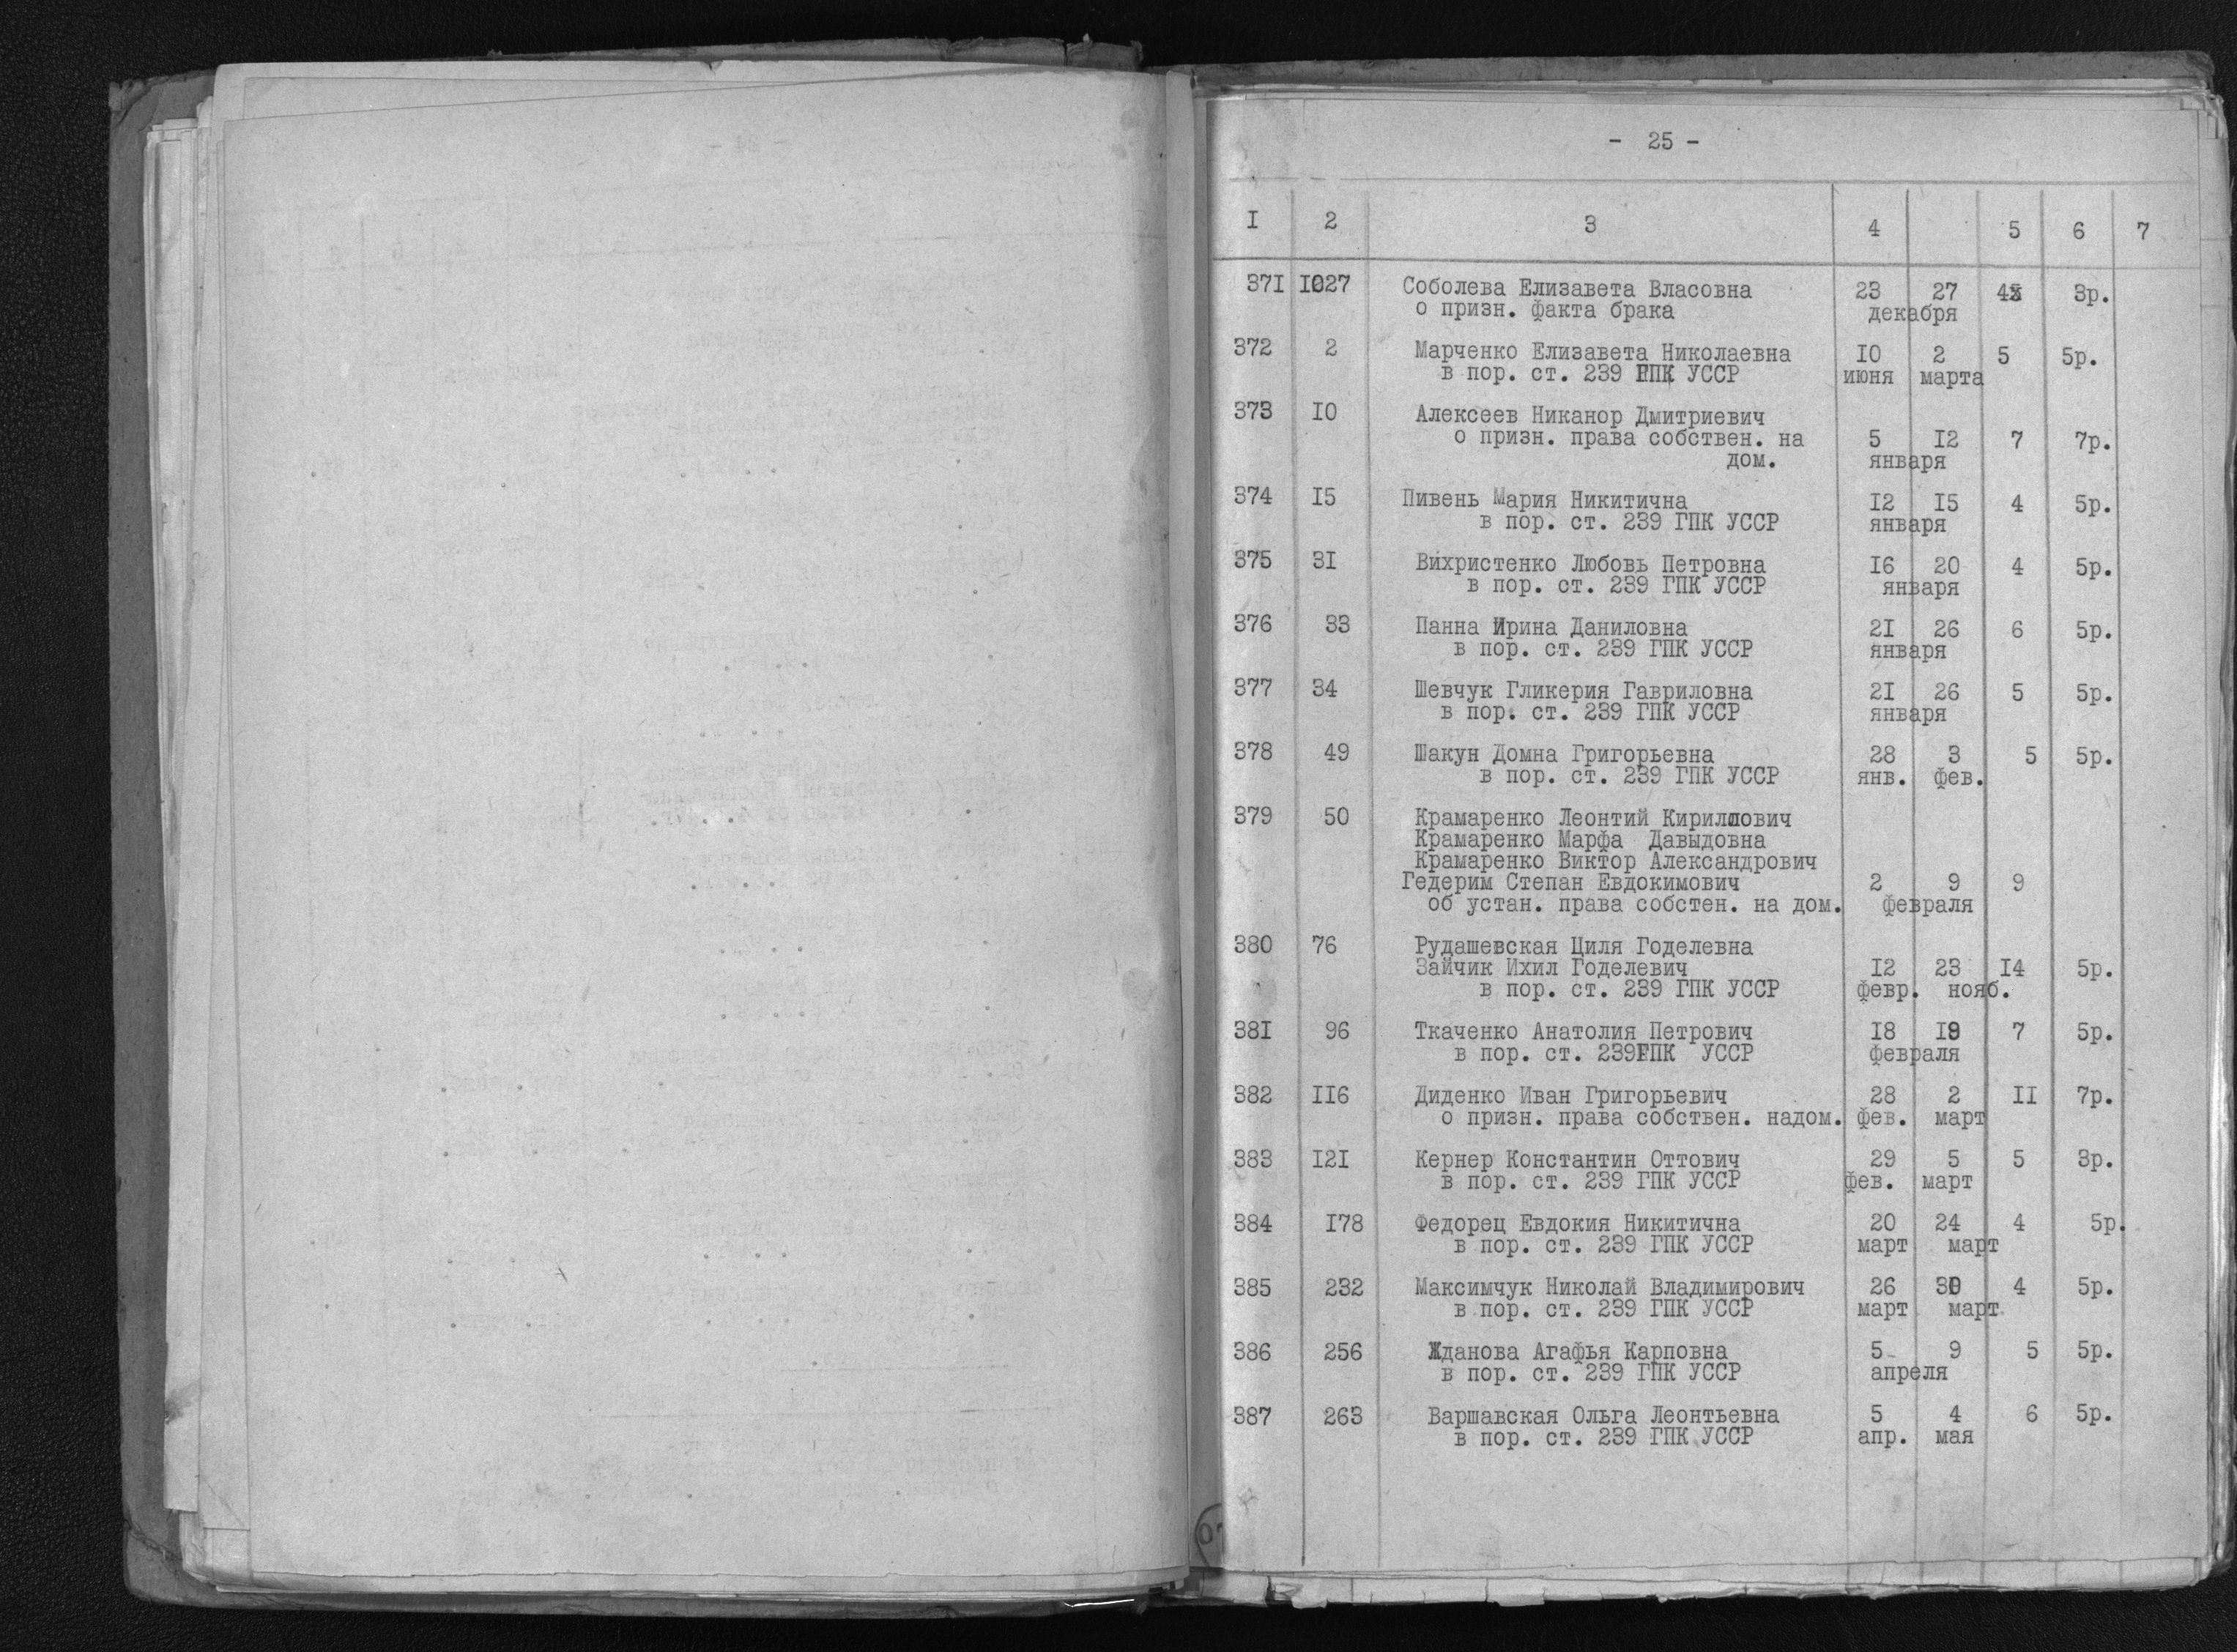 - 25 -
I 2 3 4 5 6 7
371 1027 Соболева Елизавета Власовна 23 27 4 3р.
о призн. факта брака декабря
372 2 Марченко Елизавета Николаевна 10 2 5 5р.
в пор. ст. 239 ГПК УССР июня марта
373 10 Алексеев Никанор Дмитриевич
о призн. права собствен. на 5 12 7 7р.
дом. января
374 15 Пивень Мария Никитична 12 15 4 5р.
в пор. ст. 239 ГПК УССР января
375 31 Вихристенко Любовь Петровна 16 20 4 5р.
в пор. ст. 239 ГПК УССР января
376 33 Панна Ирина Даниловна 21 26 6 5р.
в пор. ст. 239 ГПК УССР января
377 34 Шевчук Гликерия Гавриловна 21 26 5 5р.
в пор. ст. 239 ГПК УССР января
378 49 Шакун Домна Григорьевна 28 3 5 5р.
в пор. ст. 239 ГПК УССР янв. фев.
379 50 Крамаренко Леонтий Кириллович
Крамаренко Марфа Давыдовна
Крамаренко Виктор Александрович
Гедерим Степан Евдокимович 2 9 9
об устан. права собстен. на дом. февраля
380 76 Рудашевская Циля Годелевна
Зайчик Ихил Годелевич 12 23 14 5р.
в пор. ст. 239 ГПК УССР февр. нояб.
381 96 Ткаченко Анатолия Петрович 18 19 7 5р.
в пор. ст. 239ГПК УССР февраля
382 116 Диденко Иван Григорьевич 28 2 11 7р.
о призн. права собствен. надом. фев. март
383 121 Кернер Константин Оттович 29 5 5 3р.
в пор. ст. 239 ГПК УССР фев. март
384 178 Федорец Евдокия Никитична 20 24 4 5р.
в пор. ст. 239 ГПК УССР март март
385 232 Максимчук Николай Владимирович 26 30 4 5р.
в пор. ст. 239 ГПК УССР март март
386 256 Жданова Агафья Карповна 5 9 5 5р.
в пор. ст. 239 ГПК УССР апреля
387 263 Варшавская Ольга Леонтьевна 5 4 6 5р.
в пор. ст. 239 ГПК УССР апр. мая